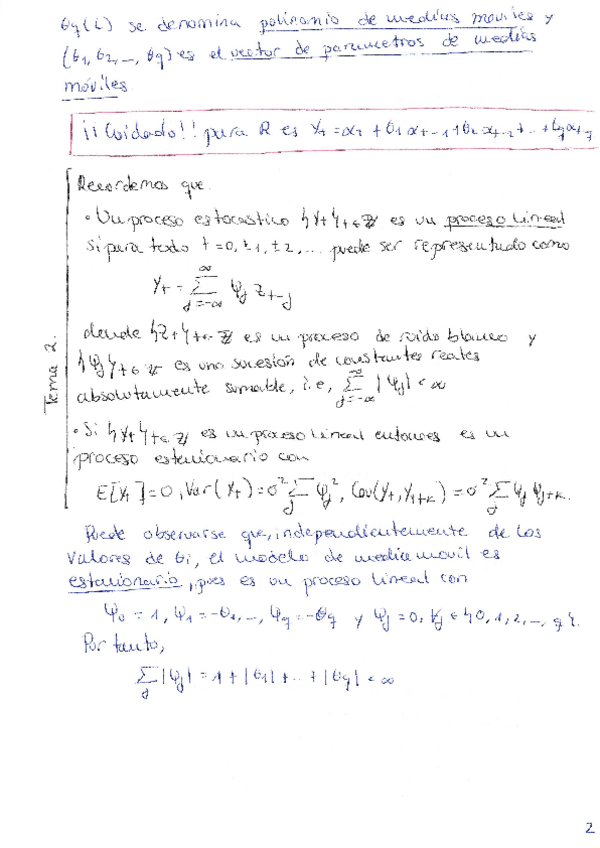 θq(L) se denomina polinomio de medias móviles y
(θ1, θ2, ..., θq) es el vector de parámetros de medias
móviles.
¡¡Cuidado!! para R es Yt = αt + θ1 αt-1 + θ2 αt-2 + ... + θq αt-q
Tema 2.
Recordemos que:
• Un proceso estocástico {Yt}t∈Z es un proceso lineal
si para todo t = 0, ±1, ±2, ... puede ser representado como
Yt = ∑_{j=-∞}^{∞} ψj Zt-j
donde {Zt}t∈Z es un proceso de ruido blanco y
{ψj}t∈Z es una sucesión de constantes reales
absolutamente sumable, i.e, ∑_{j=-∞}^{∞} |ψj| < ∞
• Si {Yt}t∈Z es un proceso lineal entonces es un
proceso estacionario con
E[Yt] = 0, Var(Yt) = σ² ∑_j ψj², Cov(Yt, Yt+k) = σ² ∑_j ψj ψj+k.
Puede observarse que, independientemente de los
valores de θi, el modelo de media movil es
estacionario, pues es un proceso lineal con
ψ0 = 1, ψ1 = -θ1, ..., ψq = -θq y ψj = 0, ∀j ∉ {0, 1, 2, ..., q}.
Por tanto,
∑_j |ψj| = 1 + |θ1| + ... + |θq| < ∞
2